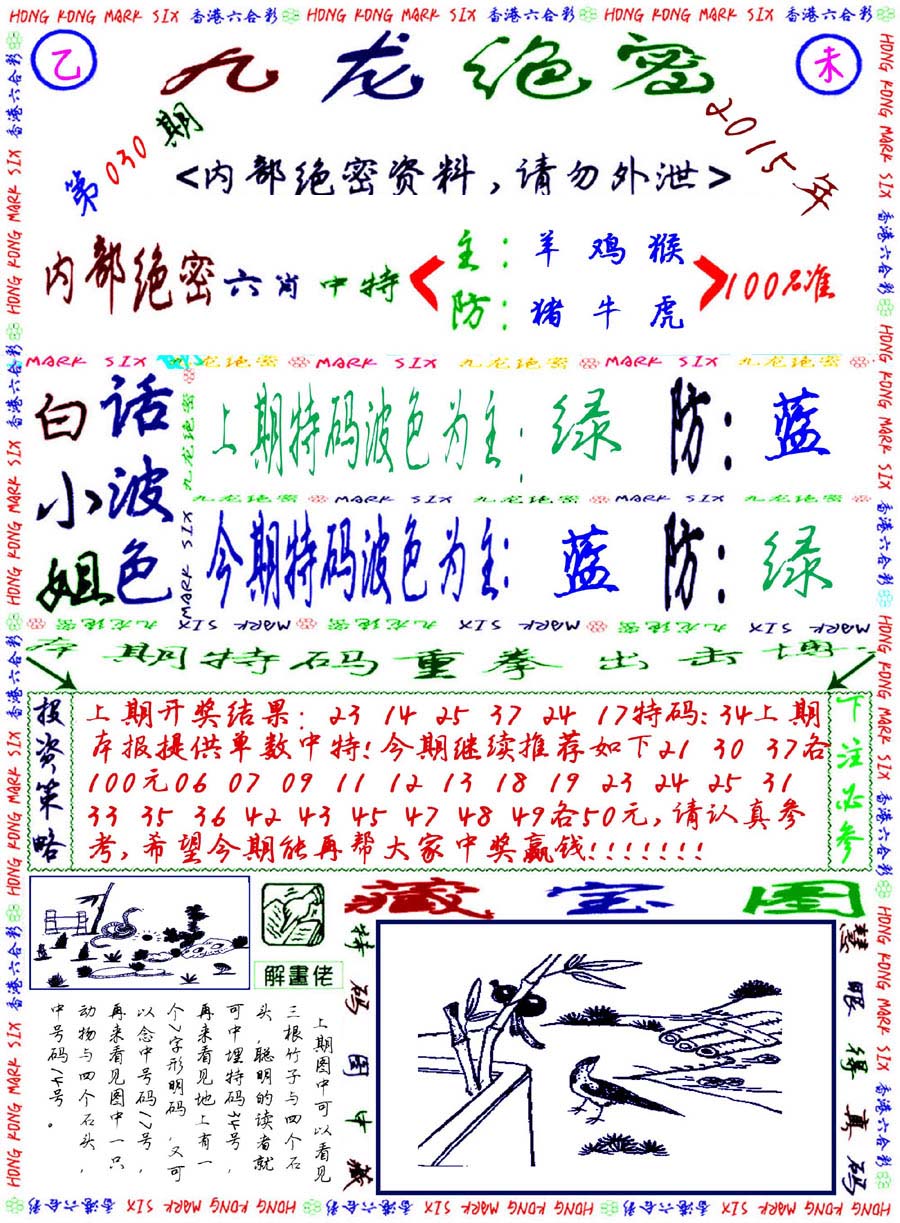 HONG KONG MARK SIX 香港六合彩 HONG KONG MARK SIX 香港六合彩 HONG KONG MARK SIX 香港六合彩
乙
九龙绝密
未
第030期
2015年
<内部绝密资料,请勿外泄>
内部绝密六肖中特
主:羊鸡猴
防:猪牛虎
100%准
MARK SIX 九龙绝密 MARK SIX 九龙绝密 MARK SIX 九龙绝密
白话
小波
姐色
上期特码波色为主:绿 防:蓝
九龙绝密 MARK SIX 九龙绝密 MARK SIX 九龙绝密
今期特码波色为主:蓝 防:绿
九龙绝密 MARK SIX 九龙绝密 MARK SIX 九龙绝密 MARK SIX
本期特码重拳出击博
投资策略
上期开奖结果: 23 14 25 37 24 17特码:34上期
本报提供单数中特!今期继续推荐如下21 30 37各
100元06 07 09 11 12 13 18 19 23 24 25 31
33 35 36 42 43 45 47 48 49各50元,请认真参
考,希望今期能再帮大家中奖赢钱!!!!!!!
下注必参
解畫佬
藏宝图
特码图中藏
慧眼得真码
上期图中可以看见
三根竹子与四个石
头,聪明的读者就
可中埋特码34号,
再来看见地上有一
个7字形明码,又可
以念中号码17号,
再来看见图中一只
动物与四个石头,
中号码14号。
HONG KONG MARK SIX 香港六合彩 HONG KONG MARK SIX 香港六合彩 HONG KONG MARK SIX 香港六合彩